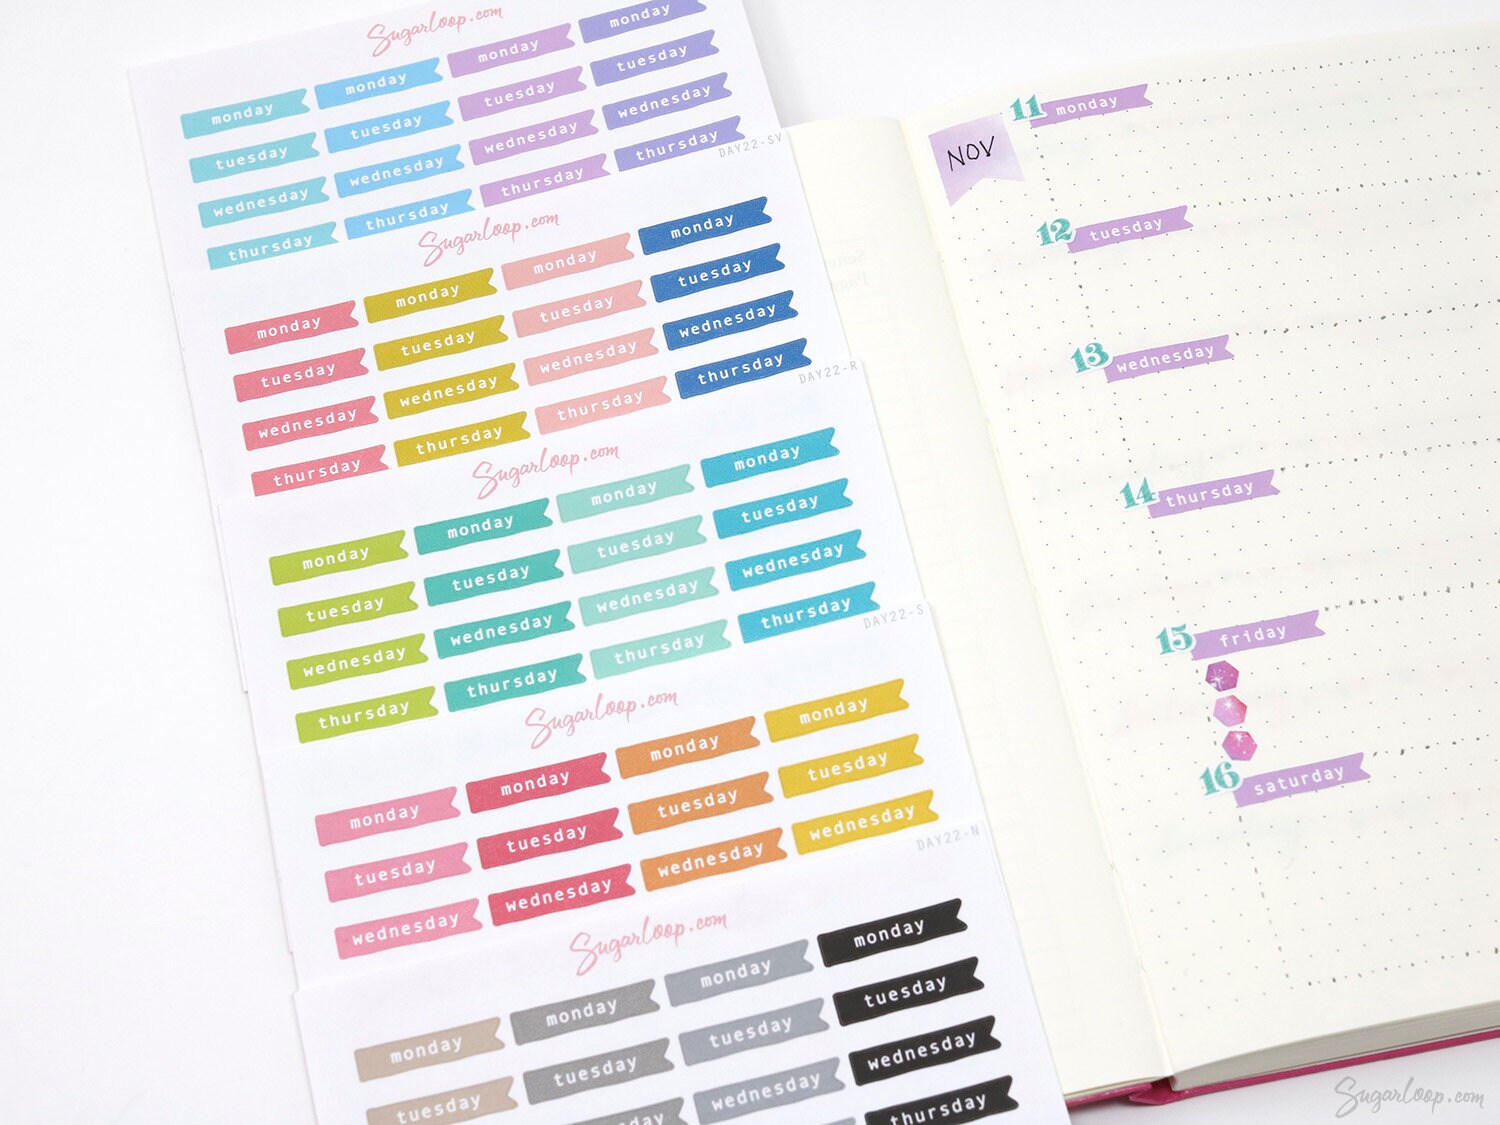 Sugarloop.com
monday monday monday monday
tuesday tuesday tuesday tuesday
wednesday wednesday wednesday wednesday
thursday thursday thursday thursday
DAY22-SV
Sugarloop.com
monday monday monday monday
tuesday tuesday tuesday tuesday
wednesday wednesday wednesday wednesday
thursday thursday thursday thursday
DAY22-R
Sugarloop.com
monday monday monday monday
tuesday tuesday tuesday tuesday
wednesday wednesday wednesday wednesday
thursday thursday thursday thursday
DAY22-S
Sugarloop.com
monday monday monday monday
tuesday tuesday tuesday tuesday
wednesday wednesday wednesday wednesday
DAY22-N
Sugarloop.com
monday monday monday monday
tuesday tuesday tuesday tuesday
wednesday wednesday
thursday
NOV
11 monday
12 tuesday
13 wednesday
14 thursday
15 friday
16 saturday
Sugarloop.com